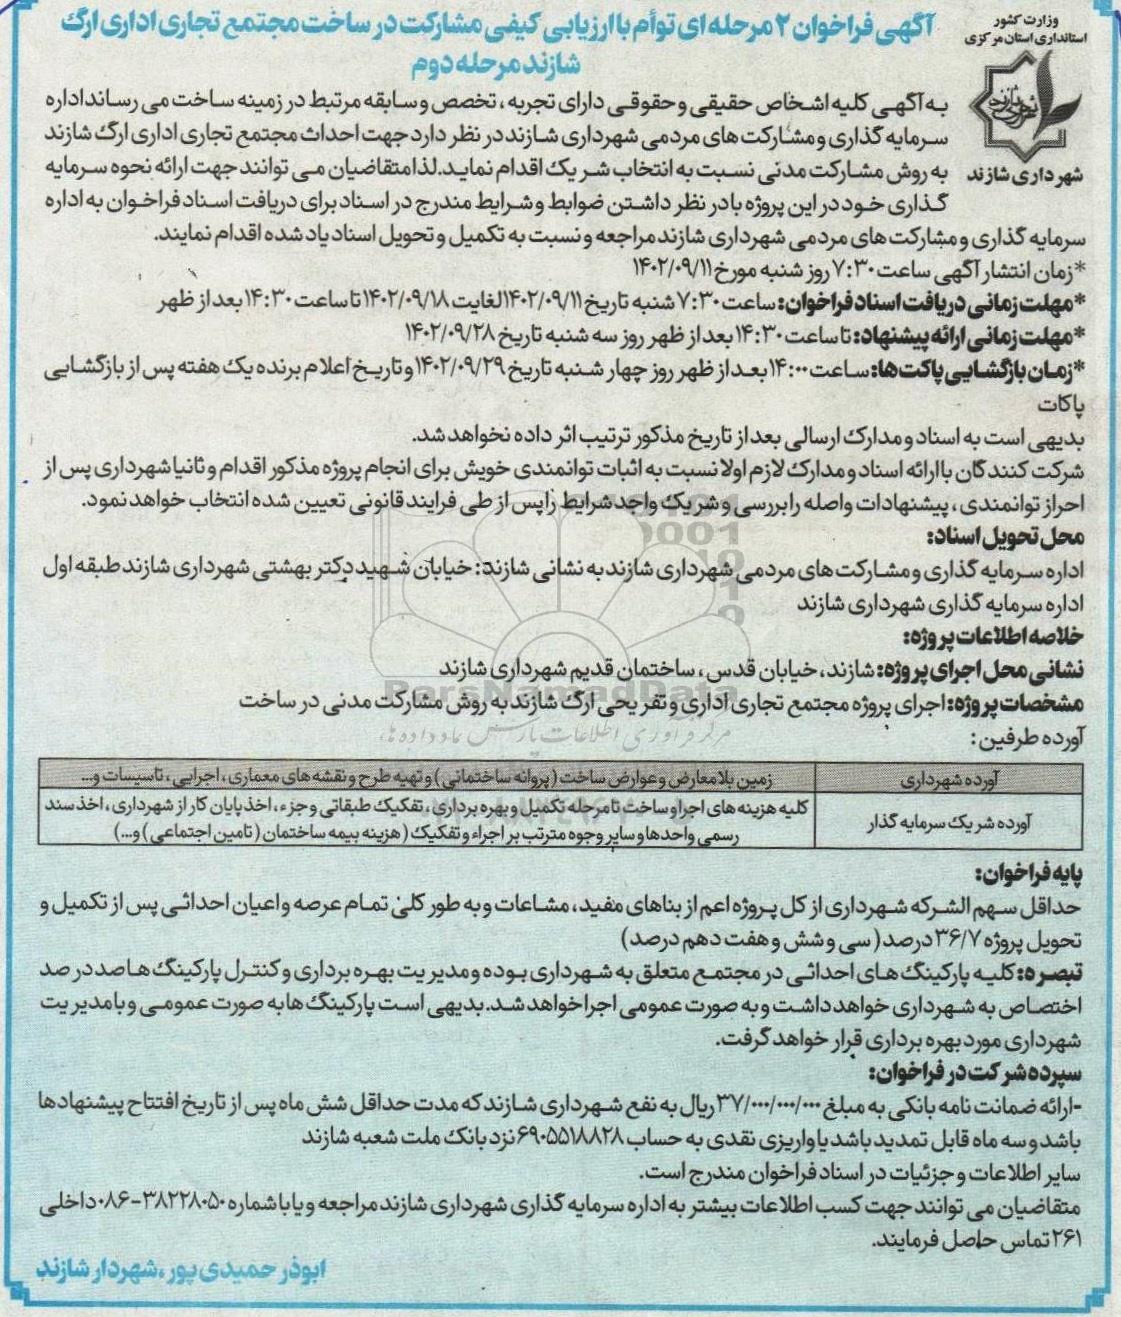 وزارت کشور
استانداری استان مرکزی
شهرداری شازند
آگهی فراخوان ۲ مرحله ای توأم با ارزیابی کیفی مشارکت در ساخت مجتمع تجاری اداری ارگ
شازند مرحله دوم
به آگهی کلیه اشخاص حقیقی و حقوقی دارای تجربه، تخصص و سابقه مرتبط در زمینه ساخت می رساند اداره
سرمایه گذاری و مشارکت های مردمی شهرداری شازند در نظر دارد جهت احداث مجتمع تجاری اداری ارگ شازند
به روش مشارکت مدنی نسبت به انتخاب شریک اقدام نماید. لذا متقاضیان می توانند جهت ارائه نحوه سرمایه
گذاری خود در این پروژه با در نظر داشتن ضوابط و شرایط مندرج در اسناد برای دریافت اسناد فراخوان به اداره
سرمایه گذاری و مشارکت های مردمی شهرداری شازند مراجعه و نسبت به تکمیل و تحویل اسناد یاد شده اقدام نمایند.
*زمان انتشار آگهی ساعت ۷:۳۰ روز شنبه مورخ ۱۴۰۲/۰۹/۱۱
*مهلت زمانی دریافت اسناد فراخوان: ساعت ۷:۳۰ شنبه تاریخ ۱۴۰۲/۰۹/۱۱ لغایت ۱۴۰۲/۰۹/۱۸ تا ساعت ۱۴:۳۰ بعد از ظهر
*مهلت زمانی ارائه پیشنهاد: تا ساعت ۱۴:۳۰ بعد از ظهر روز سه شنبه تاریخ ۱۴۰۲/۰۹/۲۸
*زمان بازگشایی پاکت ها: ساعت ۱۴:۰۰ بعد از ظهر روز چهار شنبه تاریخ ۱۴۰۲/۰۹/۲۹ و تاریخ اعلام برنده یک هفته پس از بازگشایی
پاکات
بدیهی است به اسناد و مدارک ارسالی بعد از تاریخ مذکور ترتیب اثر داده نخواهد شد.
شرکت کنندگان با ارائه اسناد و مدارک لازم اولا نسبت به اثبات توانمندی خویش برای انجام پروژه مذکور اقدام و ثانیا شهرداری پس از
احراز توانمندی، پیشنهادات واصله را بررسی و شریک واجد شرایط را پس از طی فرایند قانونی تعیین شده انتخاب خواهد نمود.
محل تحویل اسناد:
اداره سرمایه گذاری و مشارکت های مردمی شهرداری شازند به نشانی شازند: خیابان شهید دکتر بهشتی شهرداری شازند طبقه اول
اداره سرمایه گذاری شهرداری شازند
خلاصه اطلاعات پروژه:
نشانی محل اجرای پروژه: شازند، خیابان قدس، ساختمان قدیم شهرداری شازند
ParsNamadData
مشخصات پروژه: اجرای پروژه مجتمع تجاری اداری و تفریحی ارگ شازند به روش مشارکت مدنی در ساخت
آورده طرفین:
آورده شهرداری زمین بلامعارض و عوارض ساخت (پروانه ساختمانی) و تهیه طرح و نقشه های معماری، اجرایی، تاسیسات و...
آورده شریک سرمایه گذار کلیه هزینه های اجرا و ساخت تا مرحله تکمیل و بهره برداری، تفکیک طبقاتی و جزء، اخذ پایان کار از شهرداری، اخذ سند
رسمی واحدها و سایر وجوه مترتب بر اجراء و تفکیک (هزینه بیمه ساختمان (تامین اجتماعی) و...)
پایه فراخوان:
حداقل سهم الشرکه شهرداری از کل پروژه اعم از بناهای مفید، مشاعات و به طور کلی تمام عرصه و اعیان احداثی پس از تکمیل و
تحویل پروژه ۳۶/۷ درصد (سی و شش و هفت دهم درصد)
تبصره: کلیه پارکینگ های احداثی در مجتمع متعلق به شهرداری بوده و مدیریت بهره برداری و کنترل پارکینگ ها صد در صد
اختصاص به شهرداری خواهد داشت و به صورت عمومی اجرا خواهد شد. بدیهی است پارکینگ ها به صورت عمومی و با مدیریت
شهرداری مورد بهره برداری قرار خواهد گرفت.
سپرده شرکت در فراخوان:
-ارائه ضمانت نامه بانکی به مبلغ ۳۷/۰۰۰/۰۰۰/۰۰۰ ریال به نفع شهرداری شازند که مدت حداقل شش ماه پس از تاریخ افتتاح پیشنهادها
باشد و سه ماه قابل تمدید باشد یا واریزی نقدی به حساب ۶۹۰۵۵۱۸۸۲۸ نزد بانک ملت شعبه شازند
سایر اطلاعات و جزئیات در اسناد فراخوان مندرج است.
متقاضیان می توانند جهت کسب اطلاعات بیشتر به اداره سرمایه گذاری شهرداری شازند مراجعه و یا با شماره ۳۸۲۲۸۰۵۰-۰۸۶ داخلی
۲۶۱ تماس حاصل فرمایند.
ابوذر حمیدی پور، شهردار شازند